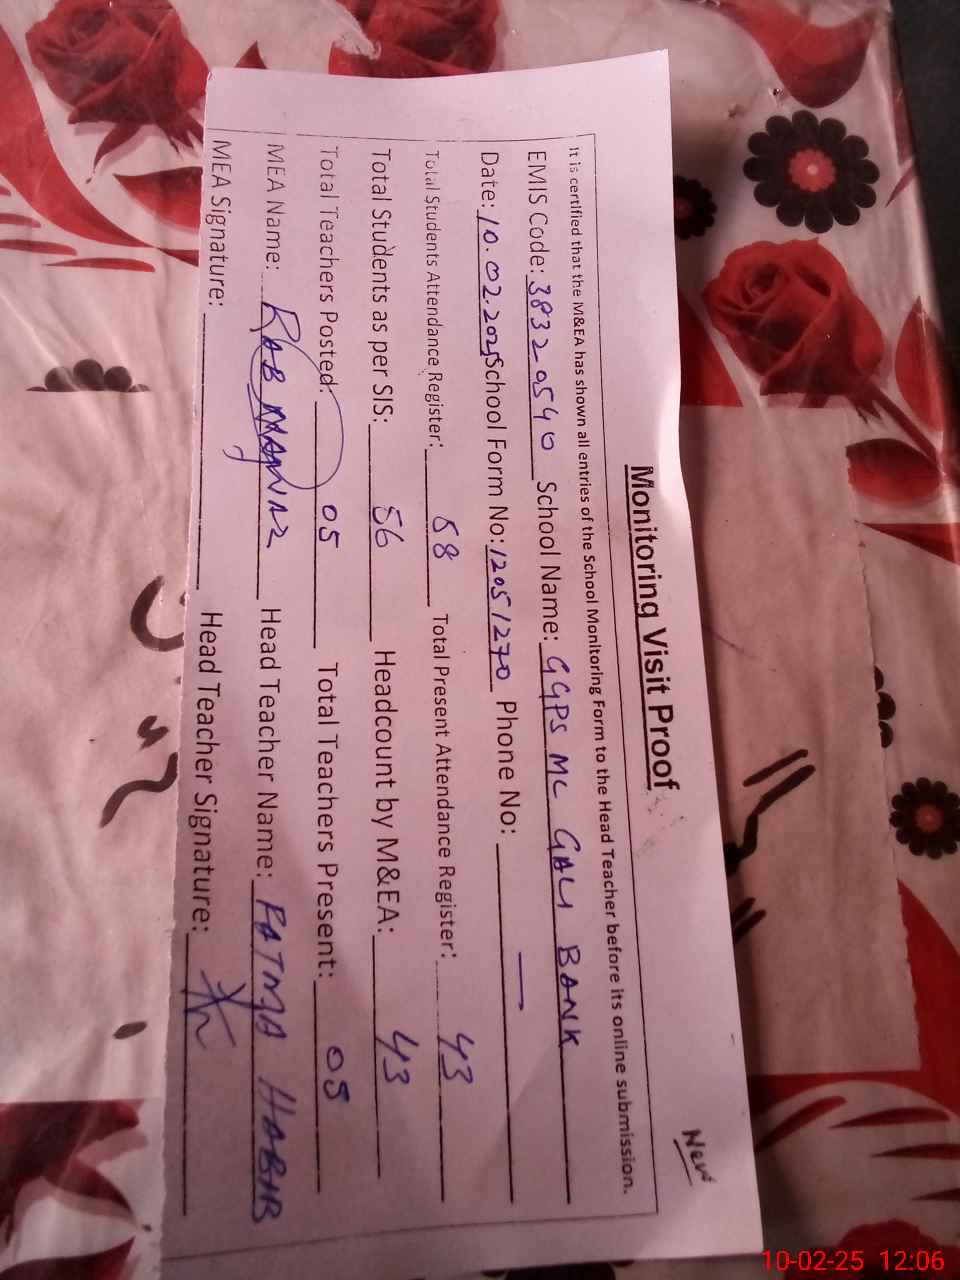 New
Monitoring Visit Proof
It is certified that the M&EA has shown all entries of the School Monitoring Form to the Head Teacher before its online submission.
EMIS Code: 38320540 School Name: GGPS MC GALI BANK
Date: 10.02.2025 School Form No: 12051270 Phone No: —
Total Students Attendance Register: 58 Total Present Attendance Register: 43
Total Students as per SIS: 56 Headcount by M&EA: 43
Total Teachers Posted: 05 Total Teachers Present: 05
MEA Name: RAB NAWAZ Head Teacher Name: FATMA HABIB
MEA Signature: Head Teacher Signature:
10-02-25 12:06